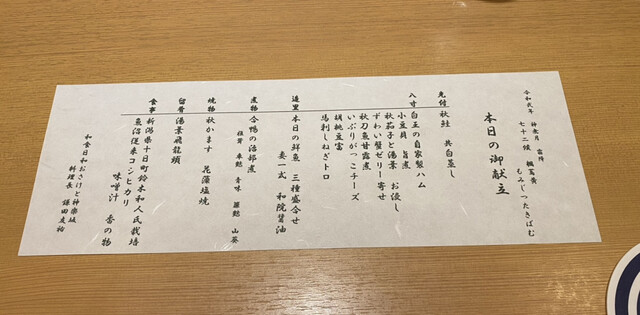 令和弐年 神無月 霜降
七十二候 楓蔦黄
もみじつたきばむ
本日の御献立
先付 秋鮭 共白蒸し
八寸 白王の自家製ハム
小豆貝 旨煮
秋茄子と湯葉 お浸し
ずわい蟹ゼリー寄せ
秋刀魚甘露煮
いぶりがっこチーズ
胡桃豆富
馬刺しねぎトロ
造里 本日の鮮魚 三種盛合せ
妻一式 和院醤油
煮物 合鴨の治部煮
椎茸 車麩 青味 羅麩 山葵
焼物 秋かます 花藻塩焼
留肴 湯葉飛龍頭
食事 新潟県十日町鈴木和人氏栽培
魚沼従来コシヒカリ
味噌汁 香の物
和食日和おさけと神楽坂
料理長 鎌田友祐